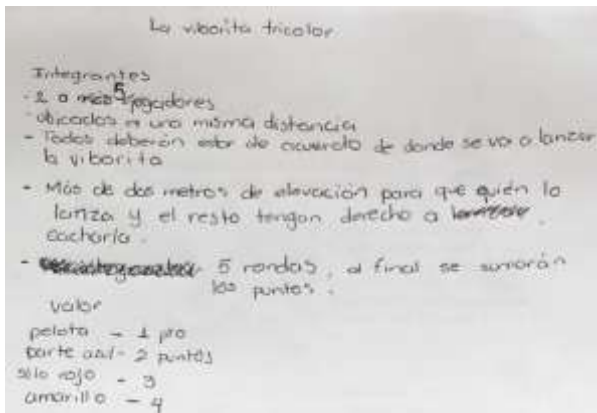 La viborita tricolor
Integrantes
- 2 a 5 jugadores
- ubicados a una misma distancia
- Todos deberán estar de acuerdo de donde se va a lanzar
la viborita
- Más de dos metros de elevación para que quién la
lanza y el resto tengan derecho a
cacharla.
- 5 rondas, al final se sumarán
los puntos.
valor
pelota - 1 pto
parte azul - 2 puntos
sólo rojo - 3
amarillo - 4